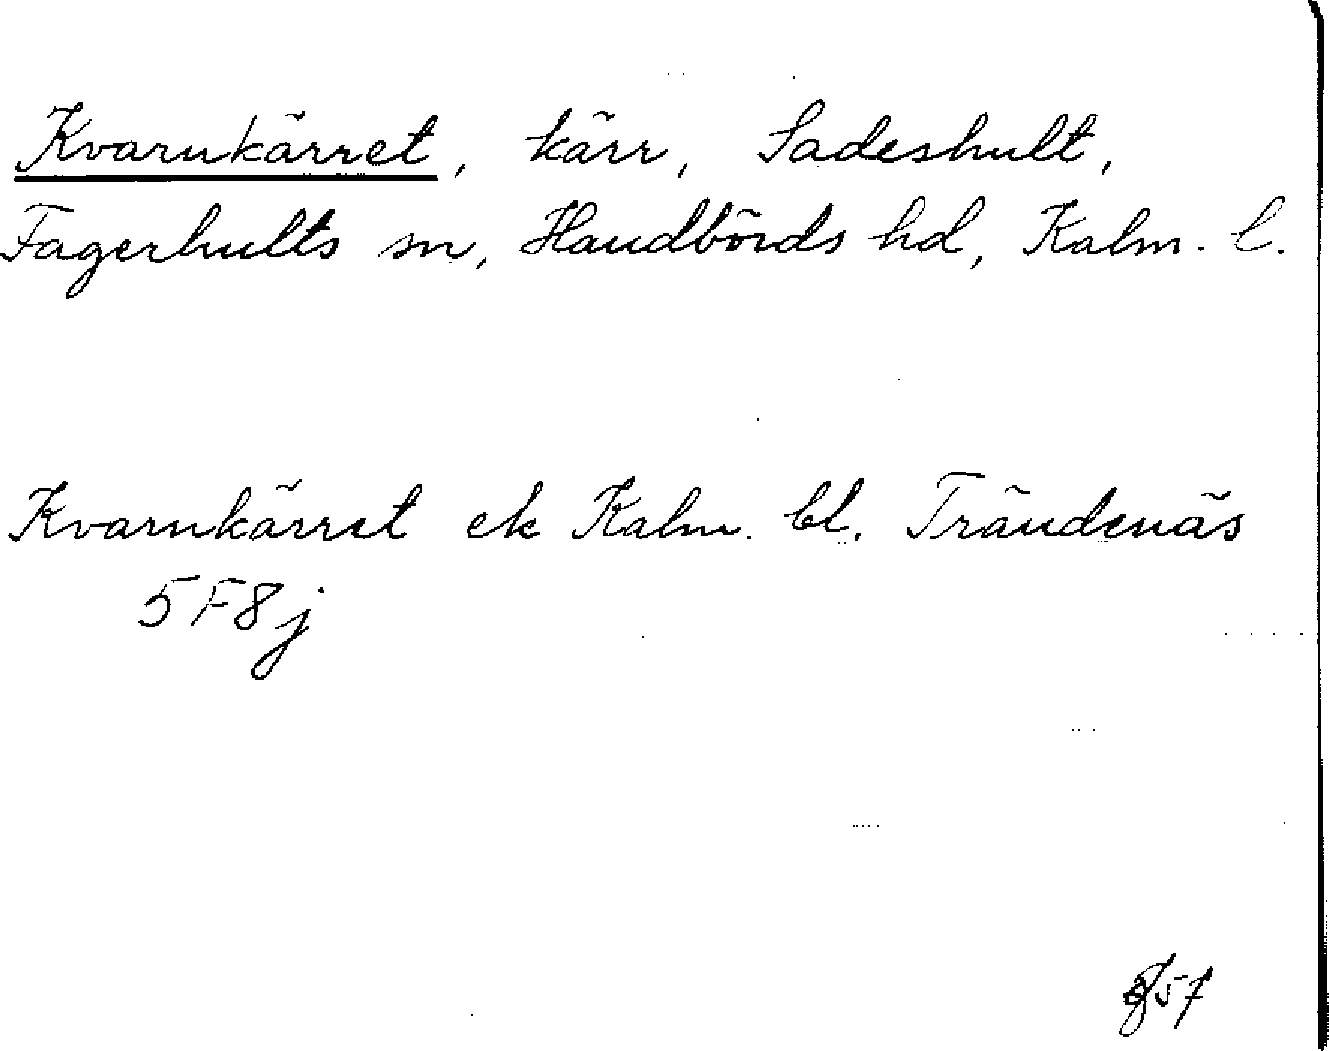 Kvarnkärret, kärr, Sadeshult,
Fagerhults sn, Handbörds hd, Kalm. l.
Kvarnkärret ek Kalm. bl. Trändenäs
5F8j